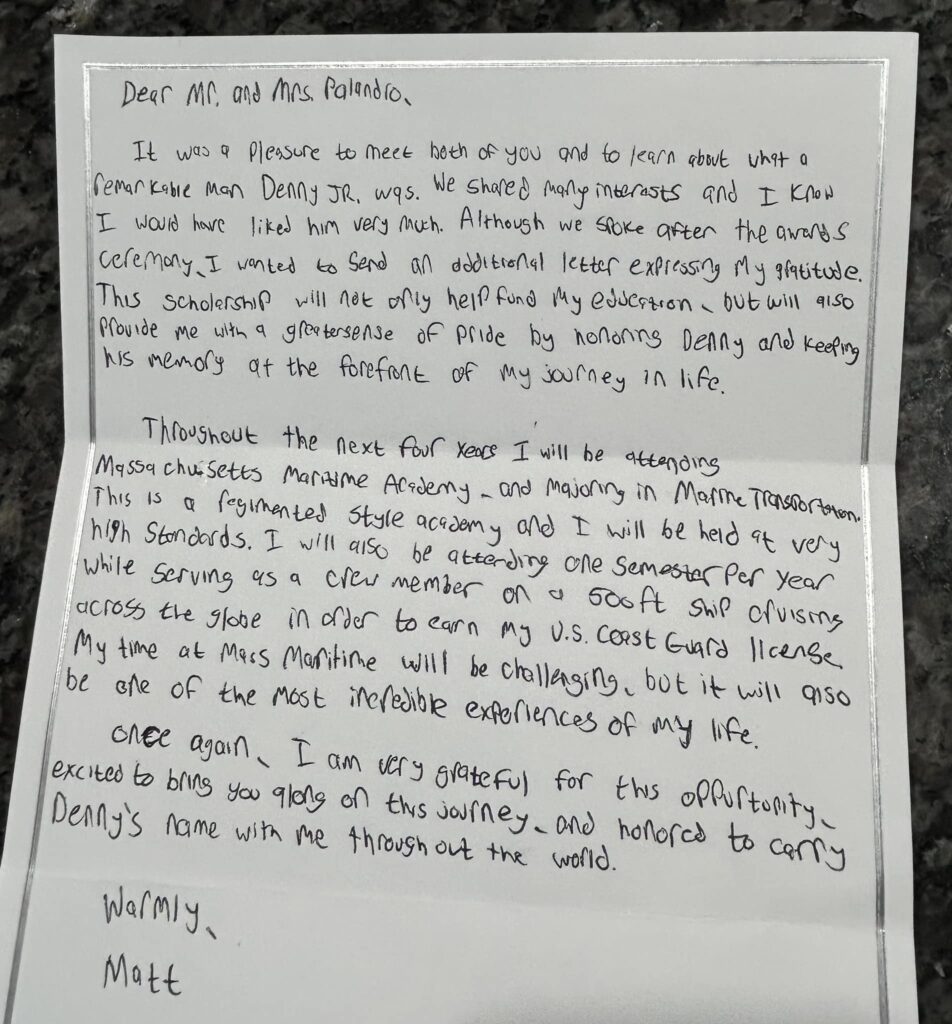 Dear Mr. and Mrs. Palandro,
It was a pleasure to meet both of you and to learn about what a
remarkable man Denny JR. was. We shared many interests and I know
I would have liked him very much. Although we spoke after the awards
ceremony, I wanted to send an additional letter expressing my gratitude.
This scholarship will not only help fund my education, but will also
provide me with a greater sense of pride by honoring Denny and keeping
his memory at the forefront of my journey in life.
Throughout the next four years I will be attending
Massachusetts Maritime Academy, and majoring in Marine Transportation.
This is a regimented style academy and I will be held at very
high standards. I will also be attending one semester per year
while serving as a crew member on a 500ft ship cruising
across the globe in order to earn my U.S. Coast Guard license.
My time at Mass Maritime will be challenging, but it will also
be one of the most incredible experiences of my life.
once again, I am very grateful for this oppurtonity,
excited to bring you along on this journey, and honored to carry
Denny's name with me throughout the world.
Warmly,
Matt